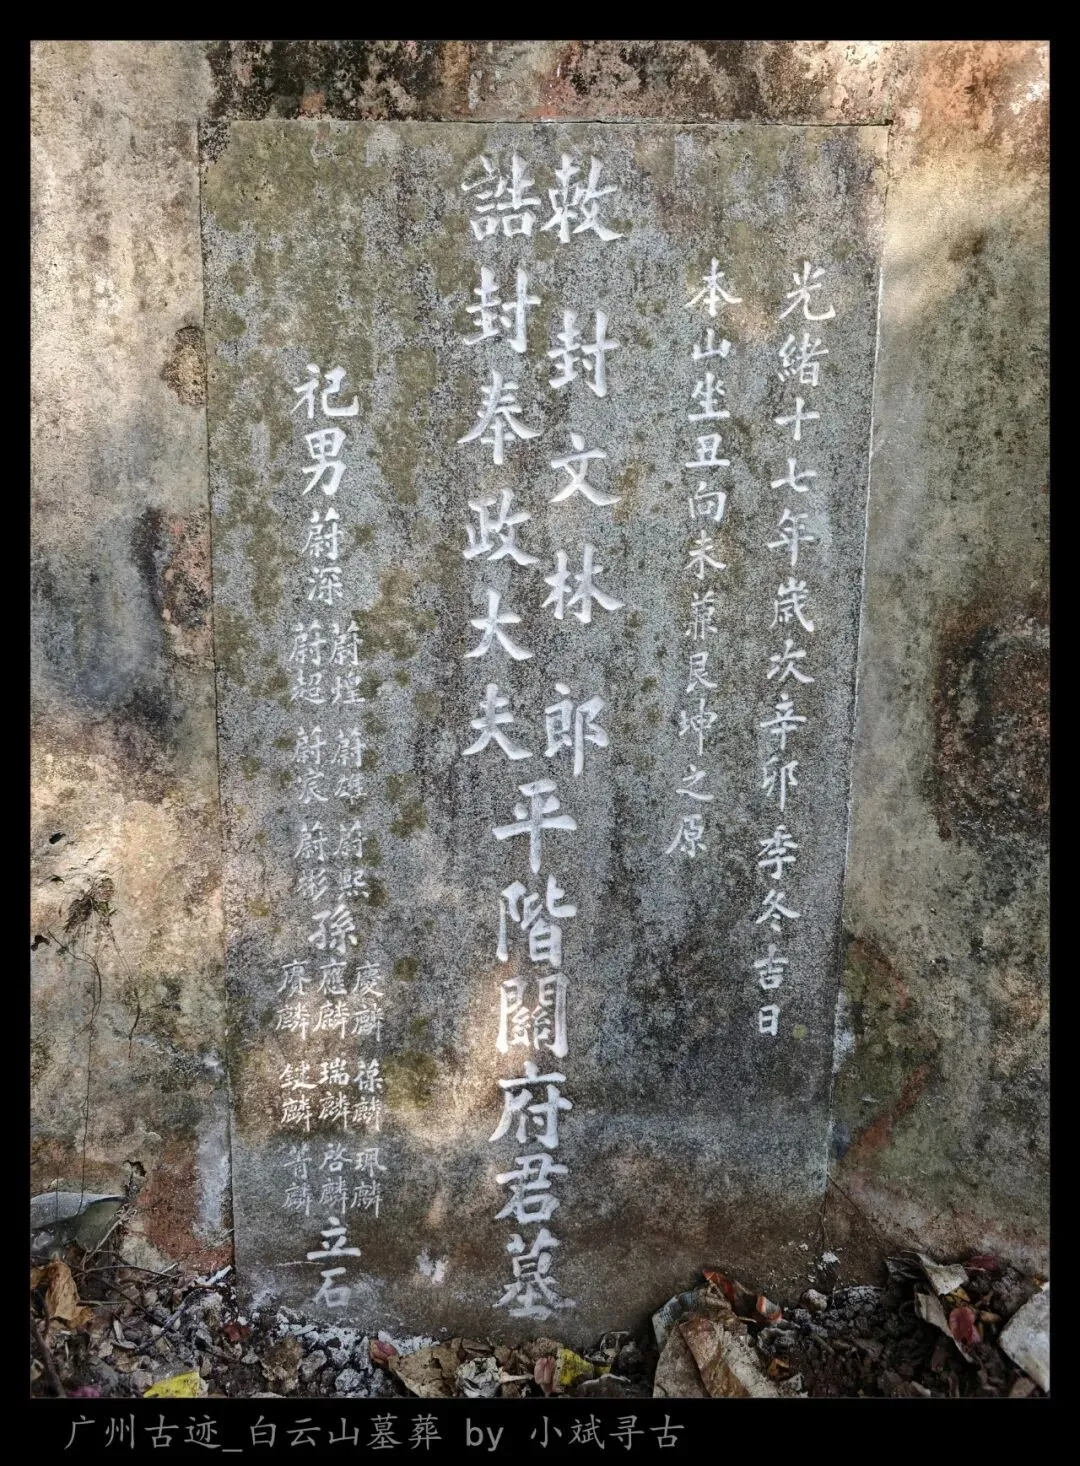 光緒十七年歲次辛卯季冬吉日
本山坐丑向未兼艮坤之原
敕封文林郎
誥封奉政大夫
平階關府君墓
祀男蔚深
蔚煌 蔚雄 蔚熙
蔚超 蔚宸 蔚彬
孫
慶麟 葆麟 珮麟
應麟 瑞麟 啓麟
賡麟 鍵麟 菁麟
立石
广州古迹_白云山墓葬 by 小斌寻古